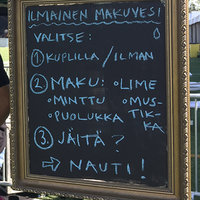 ILMAINEN MAKUVESI
VALITSE:
1 KUPLILLA / ILMAN
2 MAKU: ∘LIME
∘MINTTU ∘MUS-
∘PUOLUKKA TIK-
KA
3. JÄITÄ?
⇨ NAUTI!